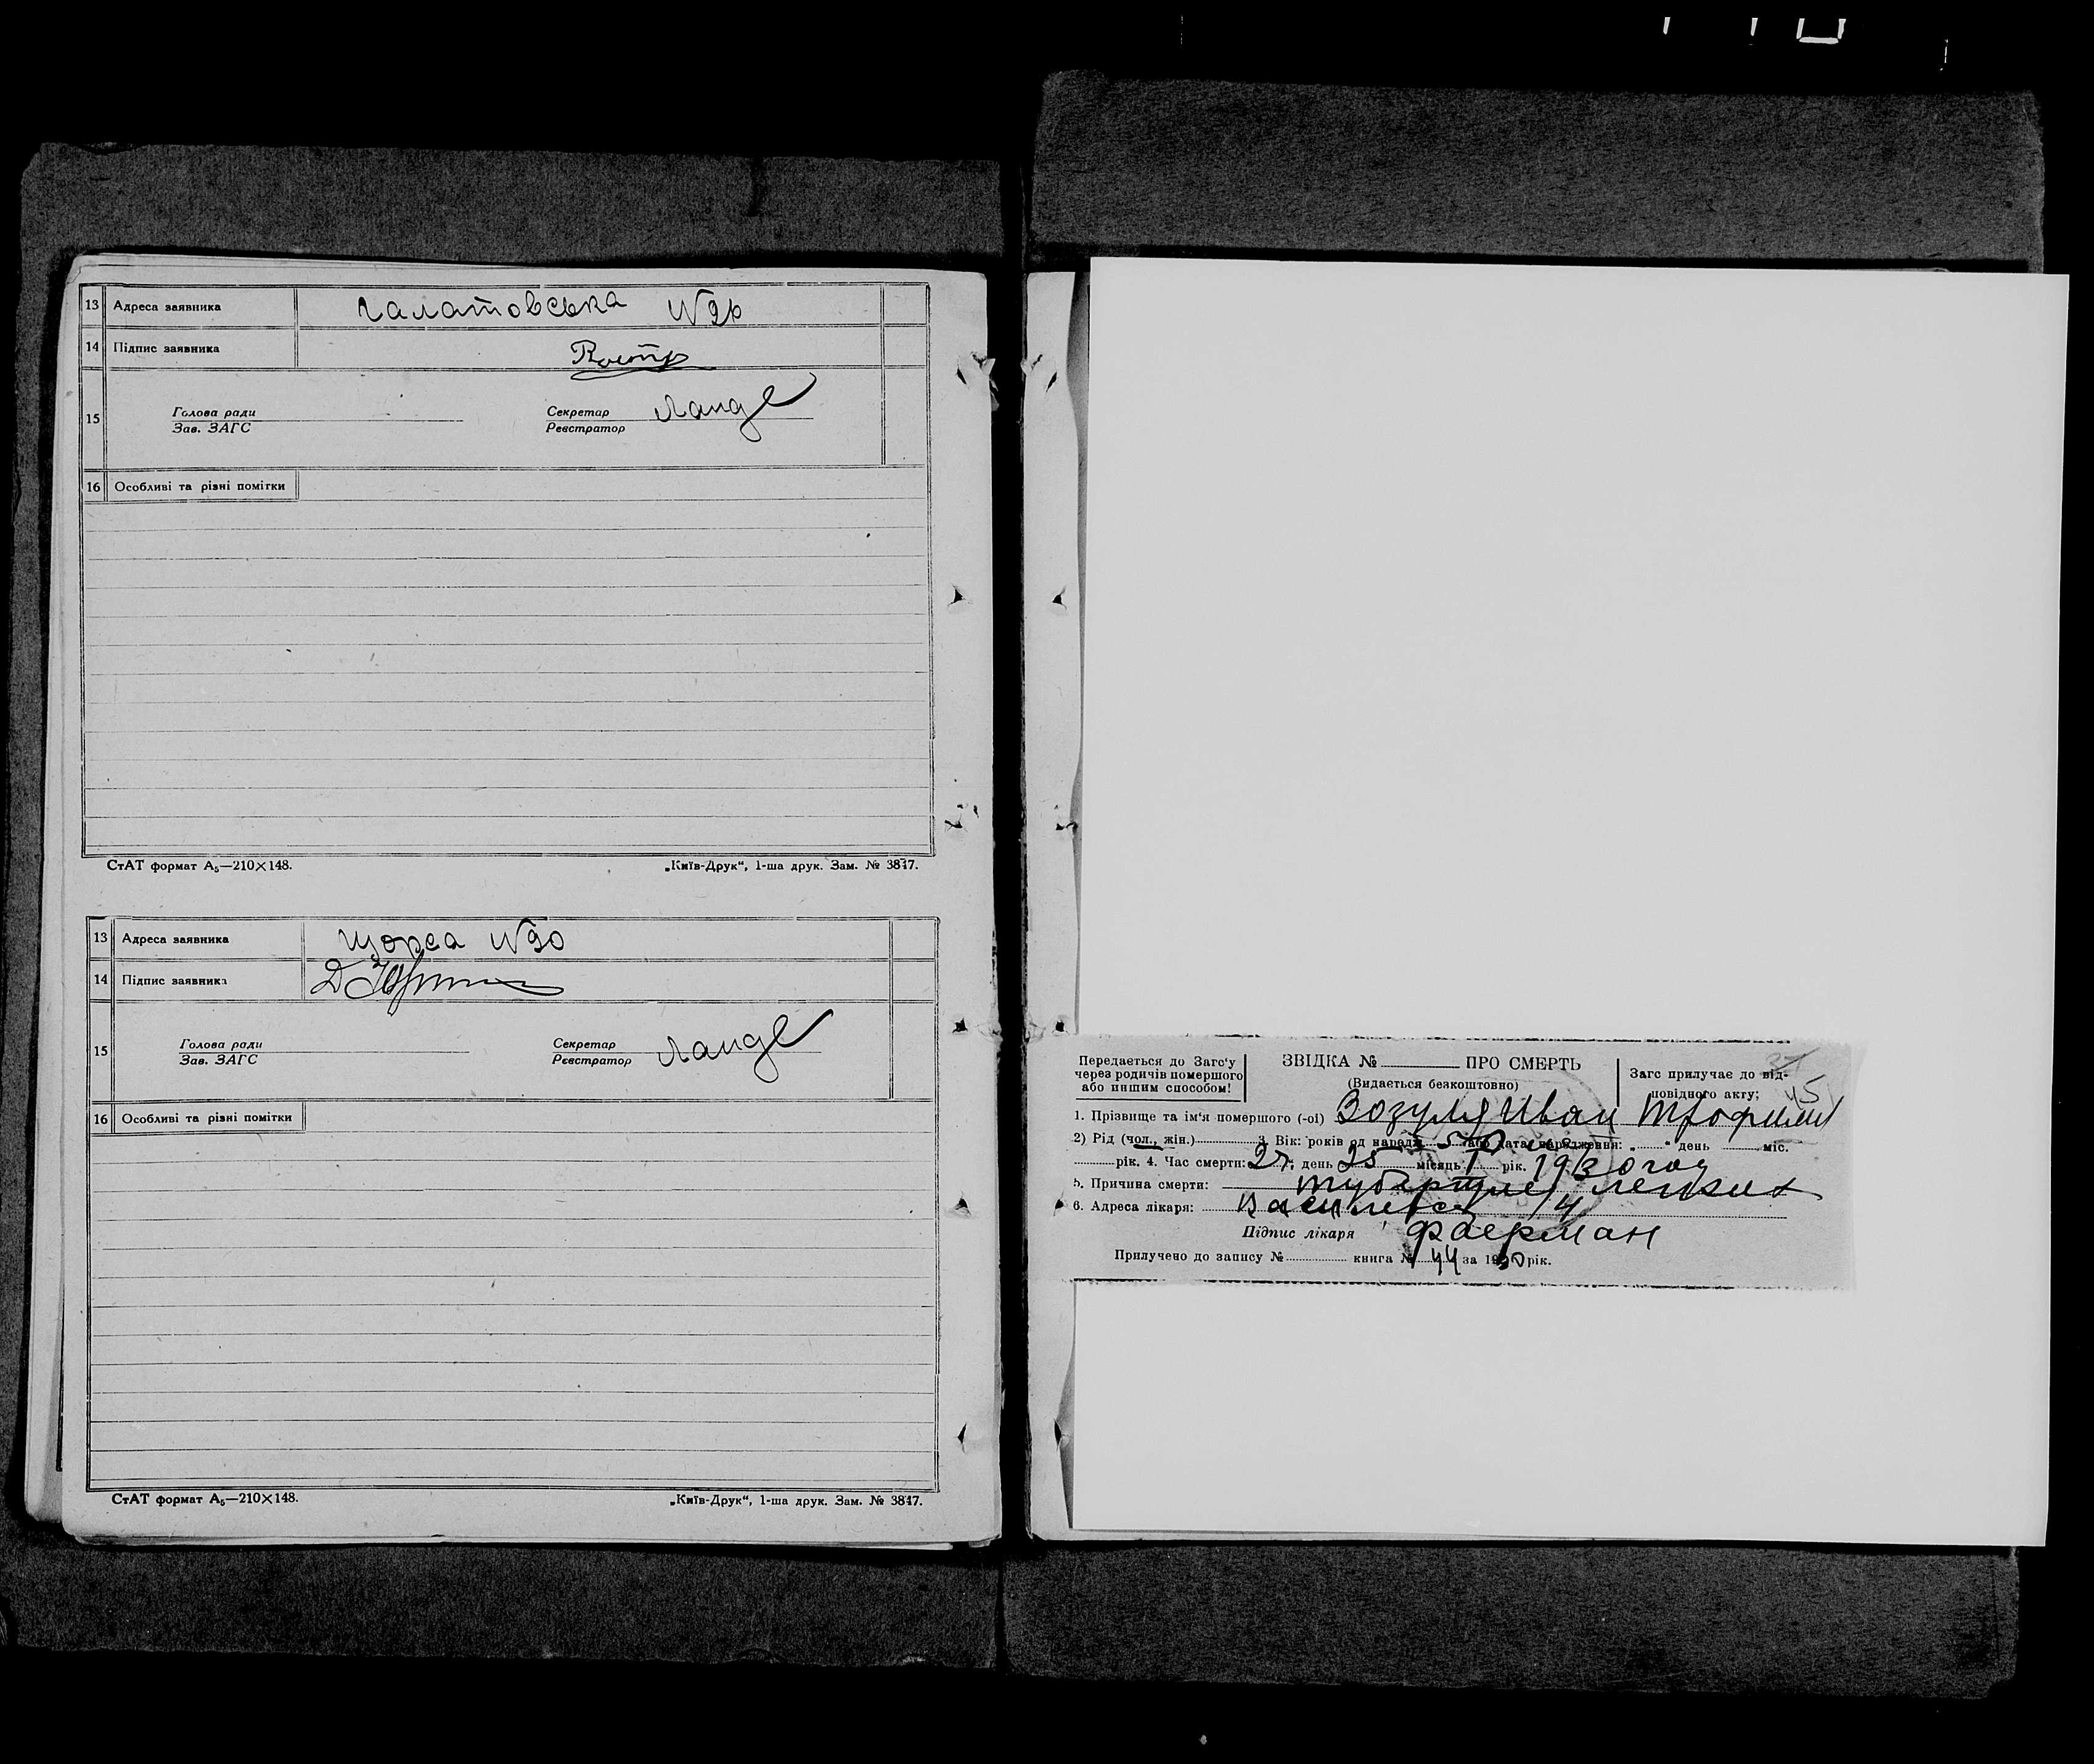 13 Адреса заявника Галатовська №
14 Підпис заявника
15 Голова ради Секретар Ланде
Зав. ЗАГС Реєстратор
16 Особливі та різні помітки
СтАТ формат А₅—210×148. „Київ-Друк“, 1-ша друк. Зам. № 3847.
13 Адреса заявника Щорса №
14 Підпис заявника
15 Голова ради Секретар Ланде
Зав. ЗАГС Реєстратор
16 Особливі та різні помітки
СтАТ формат А₅—210×148. „Київ-Друк“, 1-ша друк. Зам. № 3847.
Передається до Загс'у
через родичів помершого
або иншим способом!
ЗВІДКА № ПРО СМЕРТЬ
(Видається безкоштовно)
Загс прилучає до від-
повідного акту;
1. Прізвище та ім'я помершого (-ої) Зозуля Иван
2) Рід (чол., жін.) 3. Вік: років од народж. або дата народження: „ “ день міс.
рік. 4. Час смерти: день 25 місяць I рік. 1930 год
5. Причина смерти: легких
6. Адреса лікаря: 14
Підпис лікаря Фаерман
Прилучено до запису № книга № 44 за 1930 рік.